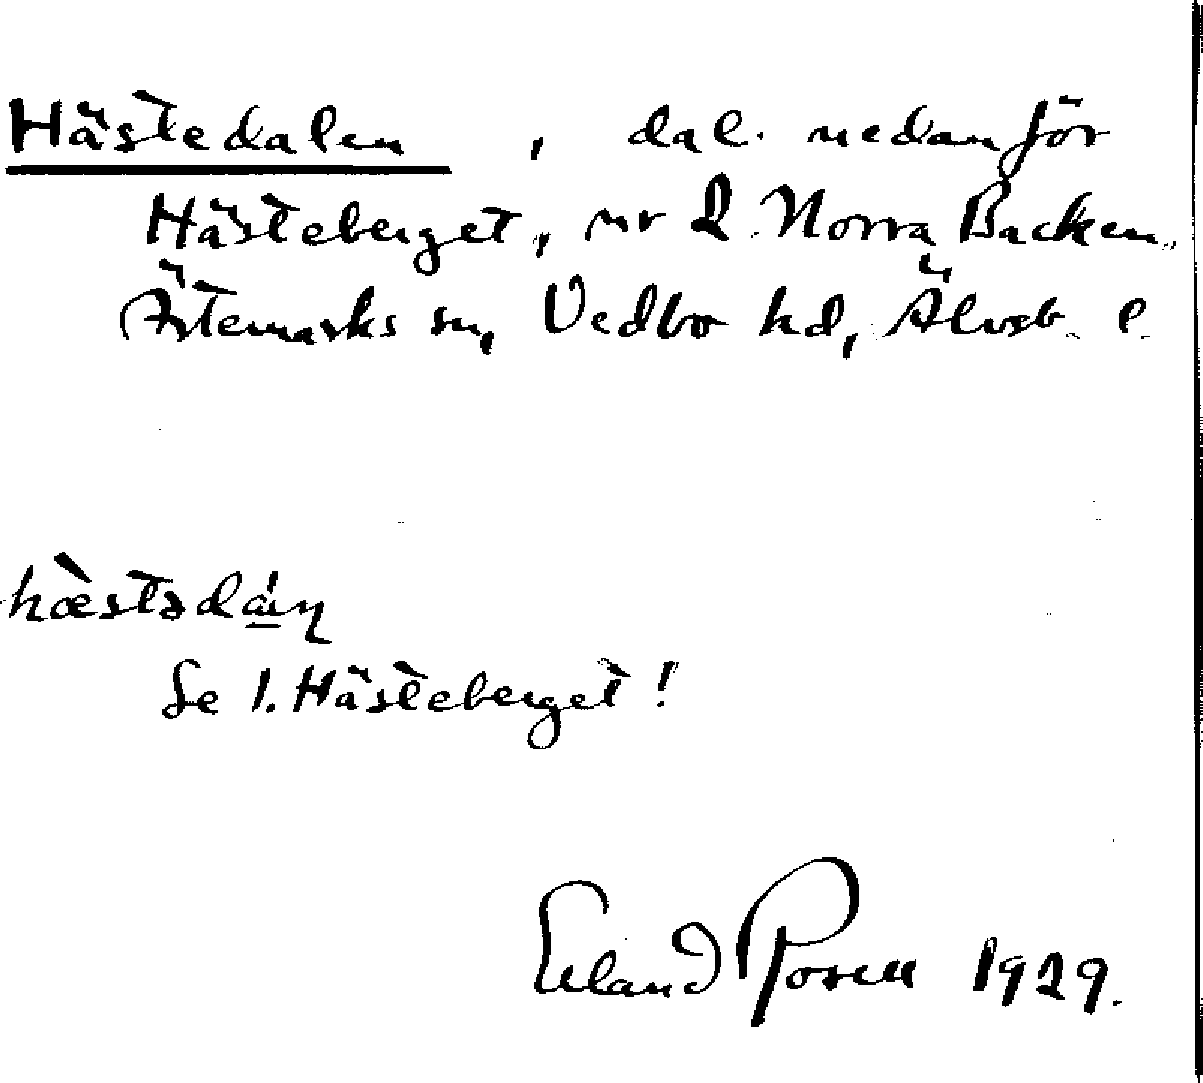 Hästedalen, dal nedanför
Hästeberget, nr 2 Norra Backen,
Ärtemarks sn, Vedbo hd, Älvsb. l.
hæ̀stədá̱ṇ
Se 1. Hästeberget!
Erland Rosell 1929.